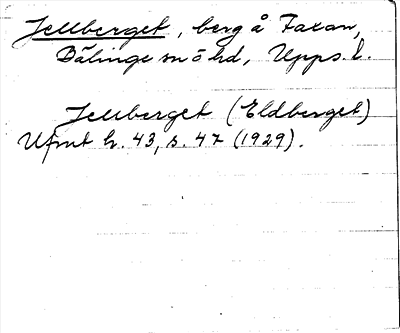 Jellberget, berg å Faxan,
Bälinge sn o hd, Upps. l.
Jellberget (Eldberget)
Ufmt h. 43, s. 47 (1929).